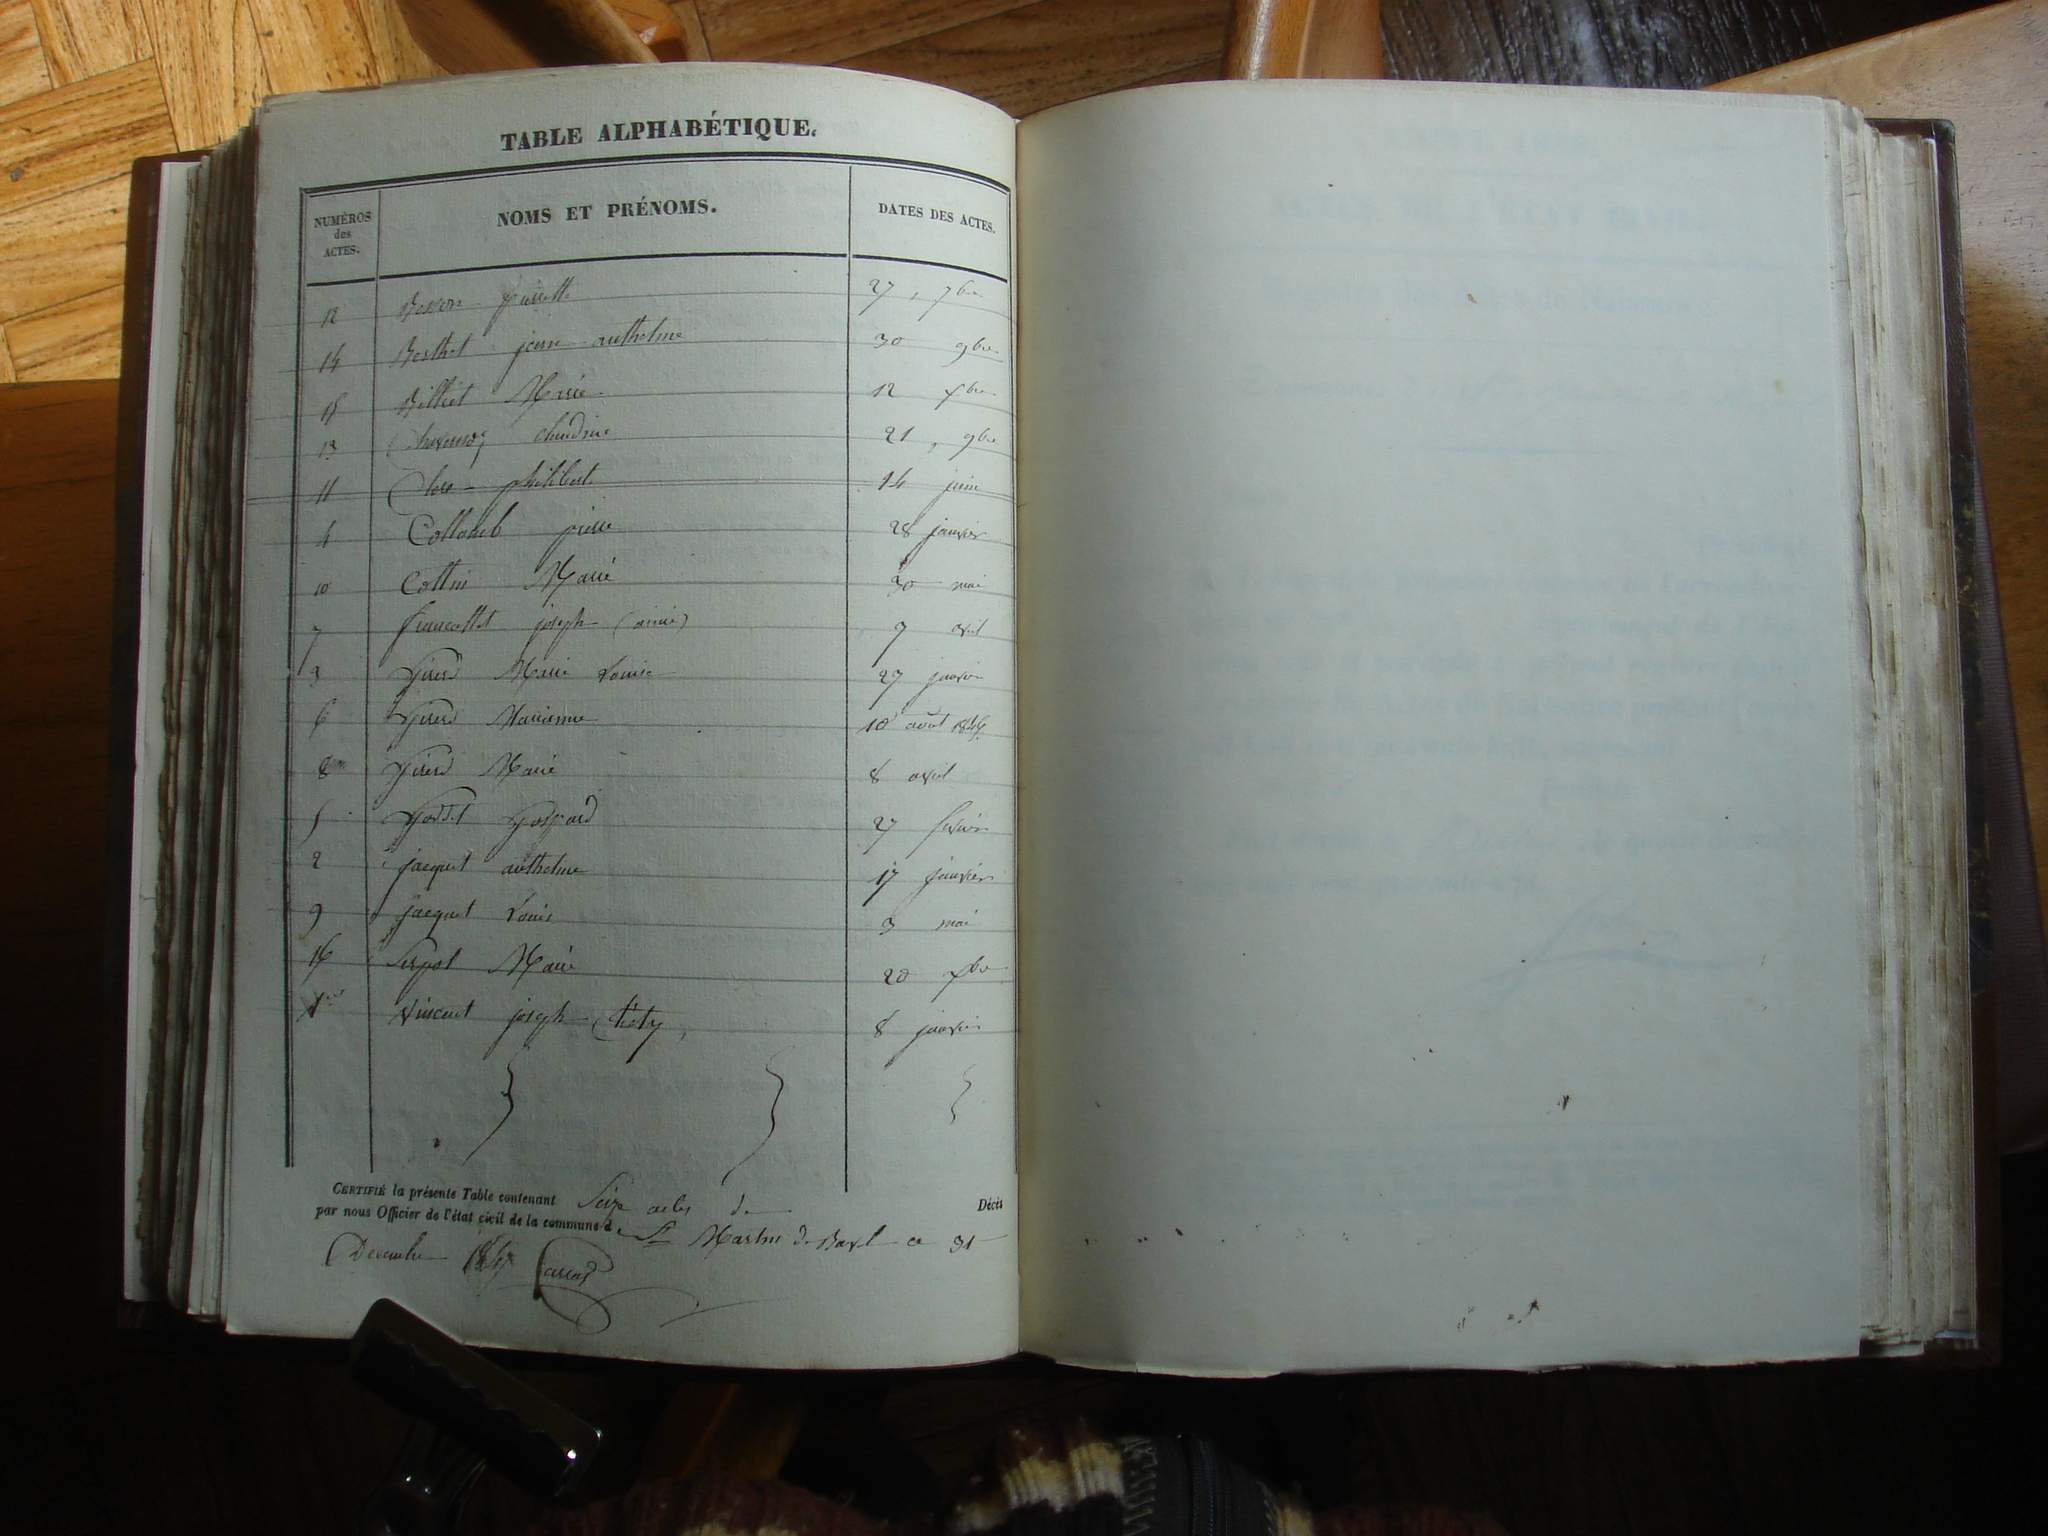 TABLE ALPHABÉTIQUE.
NUMÉROS des ACTES. NOMS ET PRÉNOMS. DATES DES ACTES.
12 pierrette 27, 7bre
14 Berthet jean anthelme 30 9bre
15 Billiet Marie 12 xbre
13 claudine 21, 9bre
11 philibert 14 juin
4 Collomb pierre 28 janvier
10 Cottin Marie 30 mai
7 francollet joseph (ainé) 7 avril
3 Girerd Marie Louise 27 janvier
6 Girerd Marianne 10 août 1846
8 Girerd Marie 8 avril
5 Goddet Gaspard 27 fevrier
2 jacquet anthelme 17 janvier
9 jacquet Louis 3 mai
16 Serpol Marie 20 xbre
1er Vincent joseph 8 janvier
CERTIFIÉ la présente Table contenant Seize actes de Décès
par nous Officier de l'état civil de la commune de St Martin de Bavel ce 31
Decembre 1847